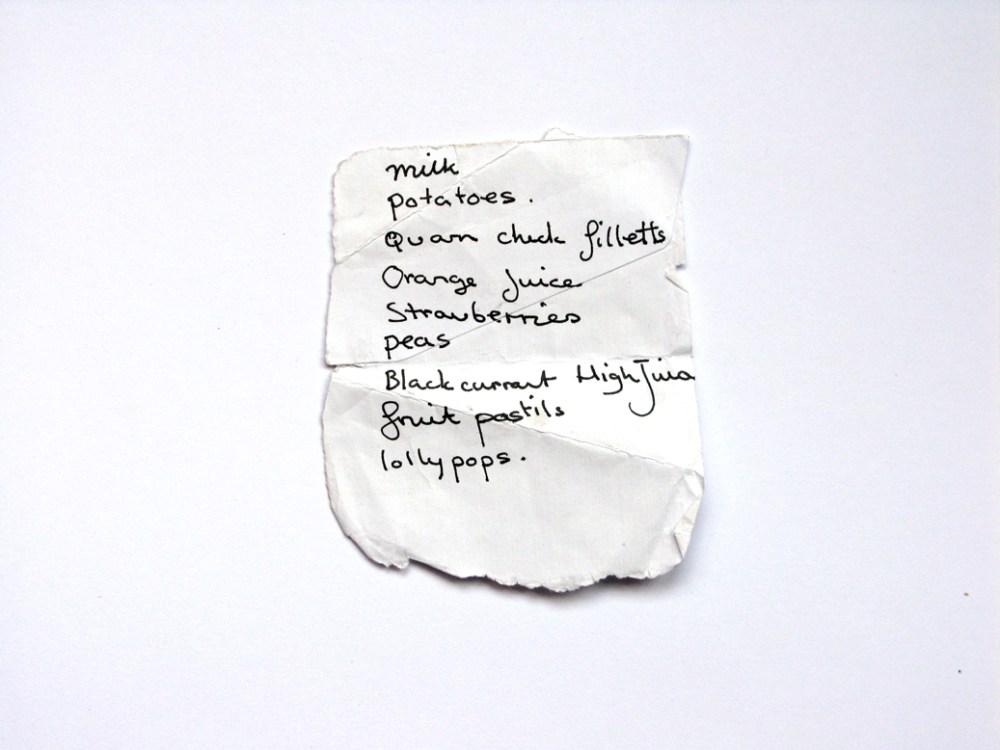 milk
potatoes.
Quarn chick filletts
Orange Juice
Strawberries
peas
Blackcurrant High Juice
fruit pastils
lollypops.